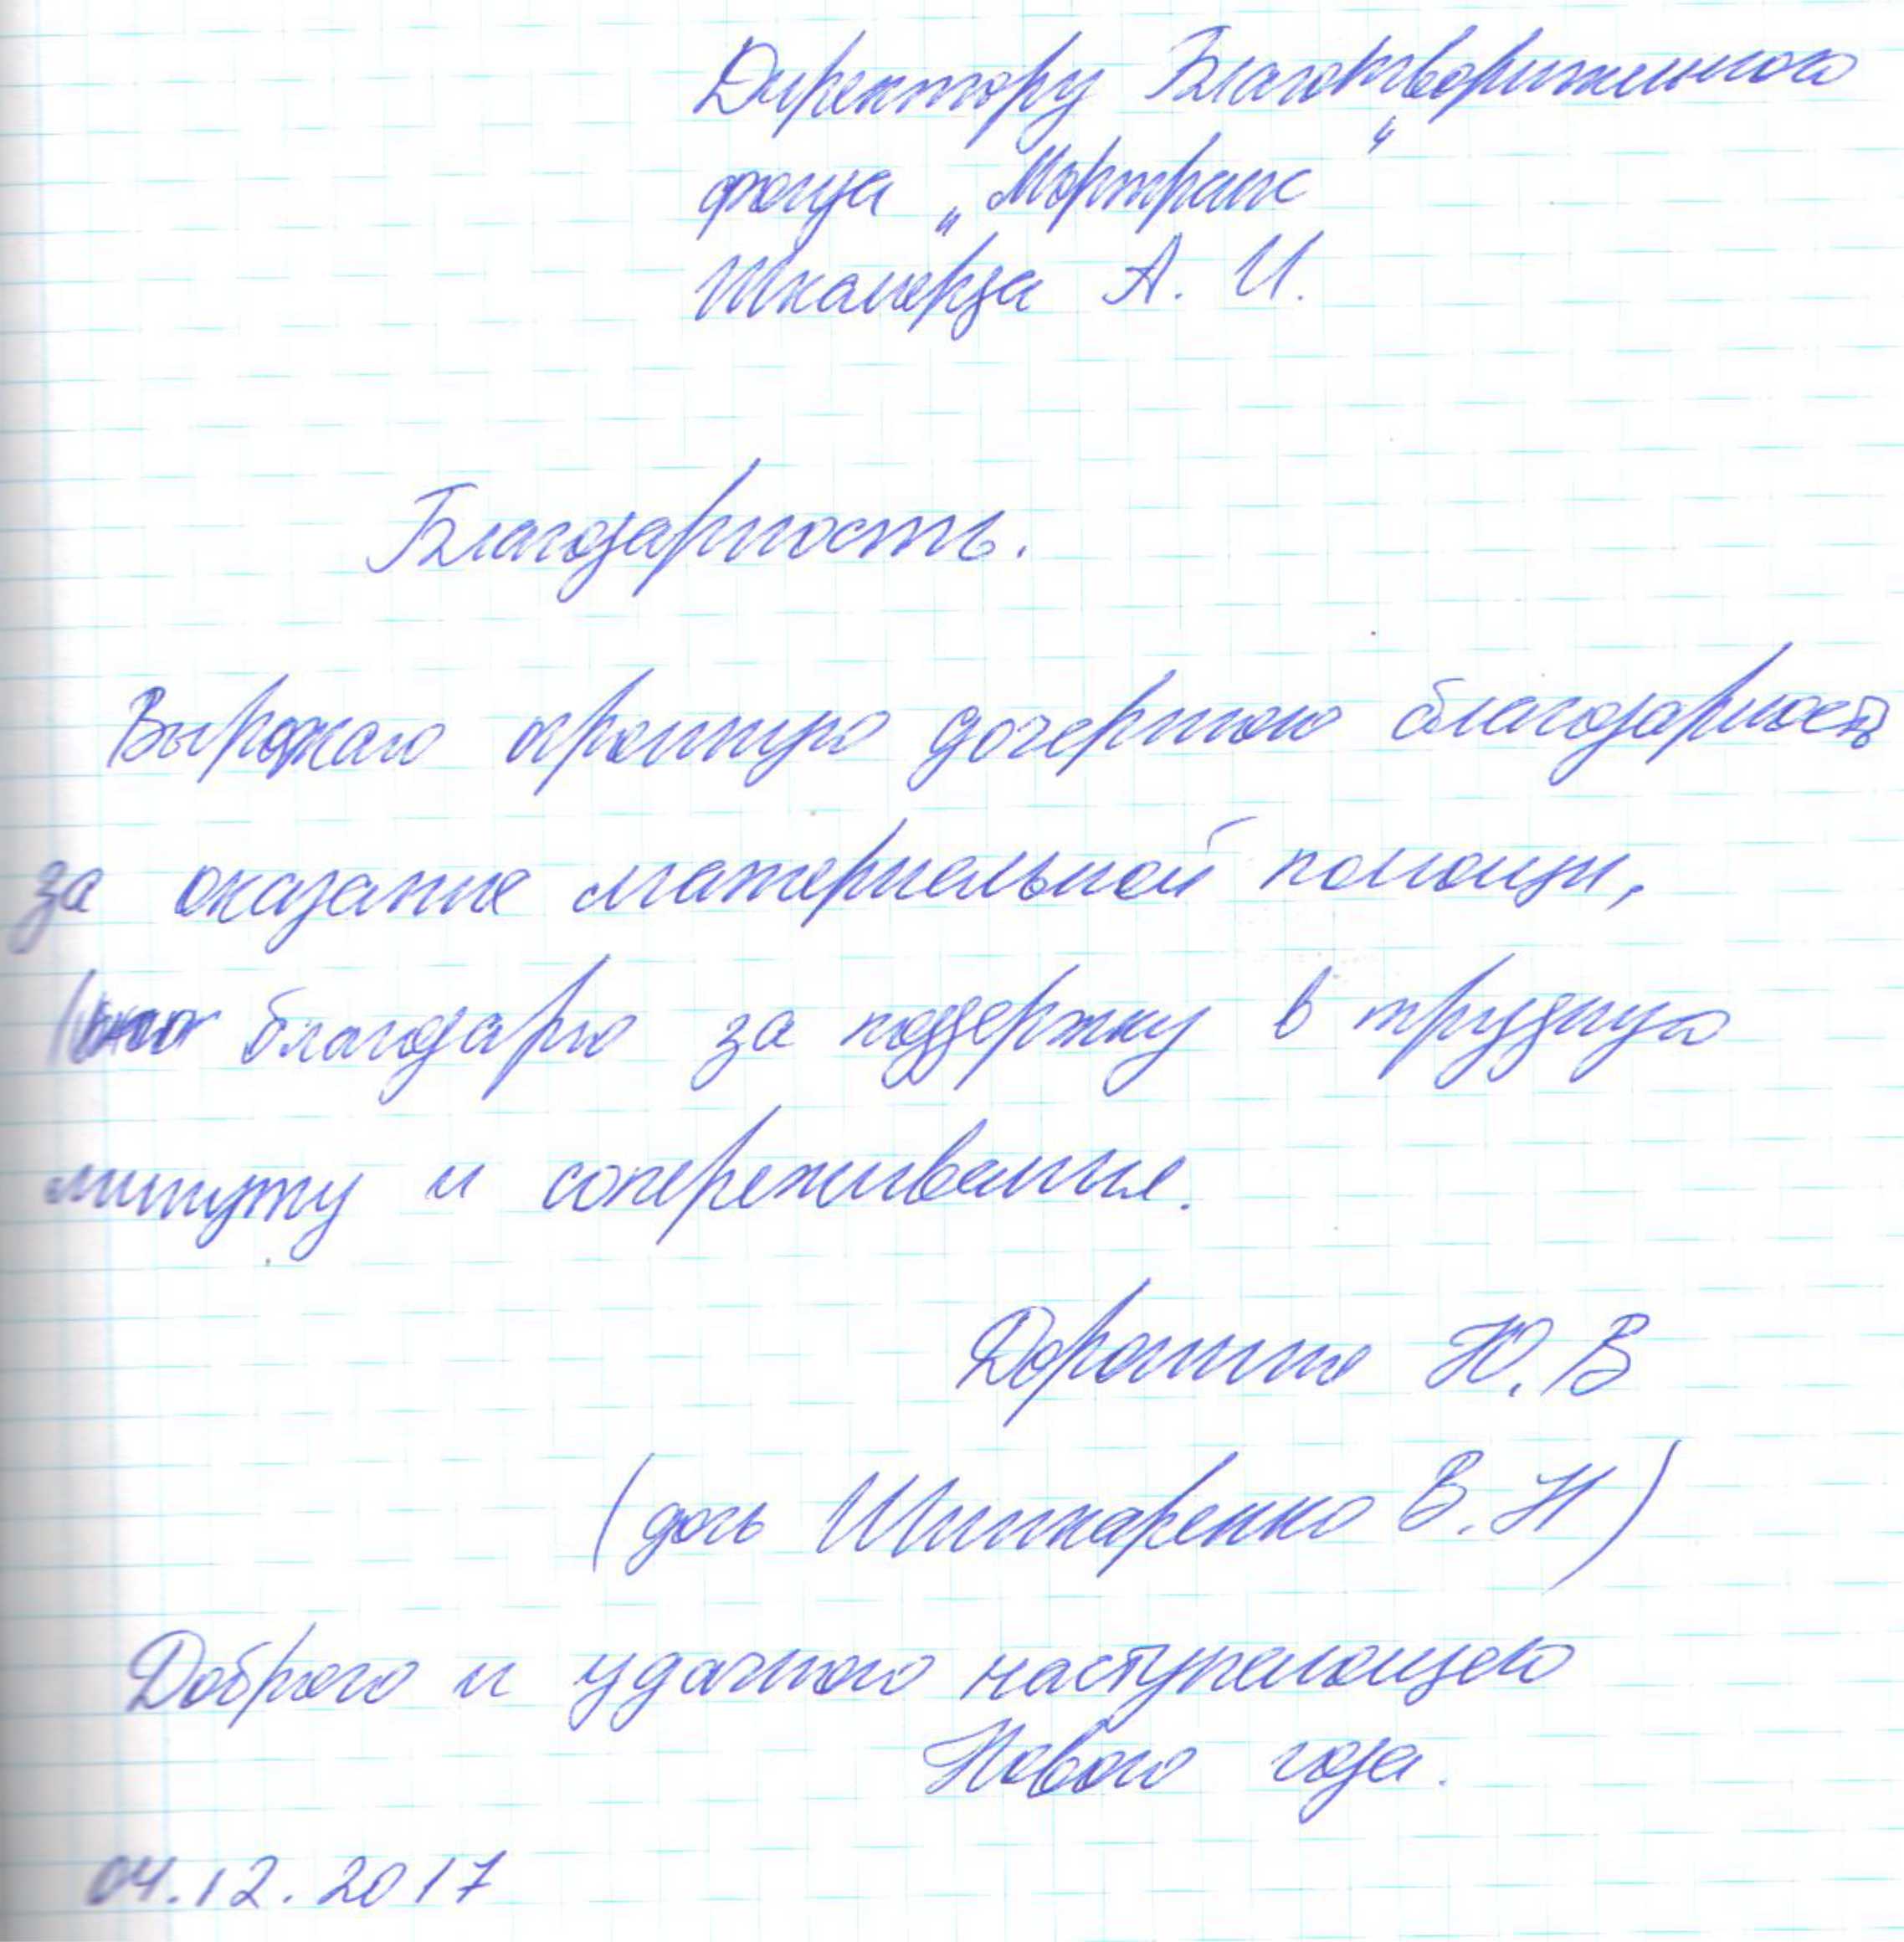 Директору Благотворительного
фонда „Мортранс“
А. И.
Благодарность.
Выражаю огромную дочернюю благодарность
за оказание материальной помощи,
благодарю за поддержку в трудную
минуту и сопереживание.
Ю. В
(дочь Шинкаренко В. Н)
Доброго и удачного наступающего
Нового года.
04.12.2017